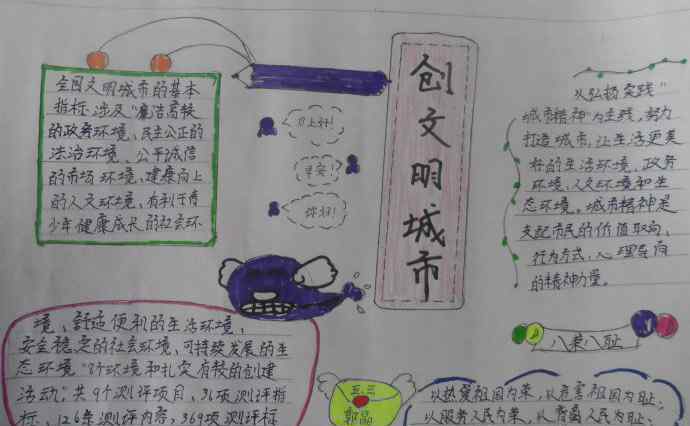 全国文明城市的基本
指标涉及"廉洁高较
的政务环境、民主公正的
法治环境、公平诚信
的市场环境、建康向上
的人文环境、有利于青
少年健康成长的社会环
境、舒适便利的生活环境、
安全稳定的社会环境、可持续发展的生
态环境"8个环境和扎实有较的创建
活动"。共9个测评项目、31项测评指
标、126条测评内容,369项测评标
早上好!
早安!
你好!
创文明城市
以弘扬实践"
城市精神"为主线,努力
打造城市,让生活更美
好的生活环境、政务
环境、人文环境和生
态环境。城市精神是
支配市民的价值取向、
行为方式、心理导向
的精神力量。
八荣八耻
以热爱祖国为荣、以危害祖国为耻、
以服务人民为荣、以背离人民为耻、
五三